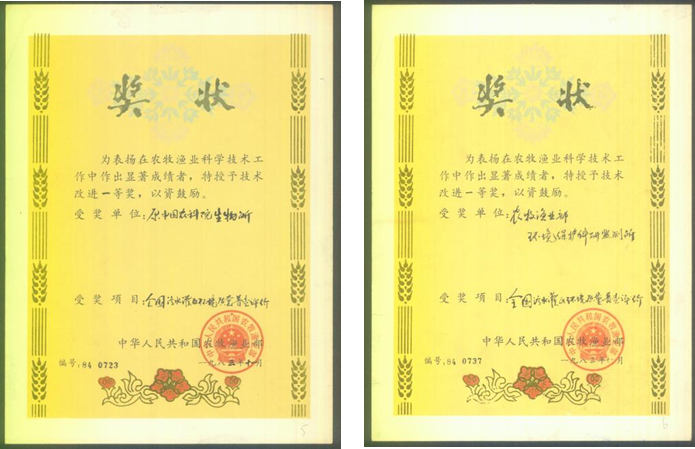 奖状
为表扬在农牧渔业科学技术工
作中作出显著成绩者，特授予技术
改进一等奖，以资鼓励。
受奖单位：原中国农科院生物所
受奖项目：全国污水灌区环境质量普查评价
中华人民共和国农牧渔业部
编号：84 0723
5
奖状
为表扬在农牧渔业科学技术工
作中作出显著成绩者，特授予技术
改进一等奖，以资鼓励。
受奖单位：农牧渔业部
环境保护科研监测所
受奖项目：全国污水灌区环境质量普查评价
中华人民共和国农牧渔业部
编号：84 0737
6